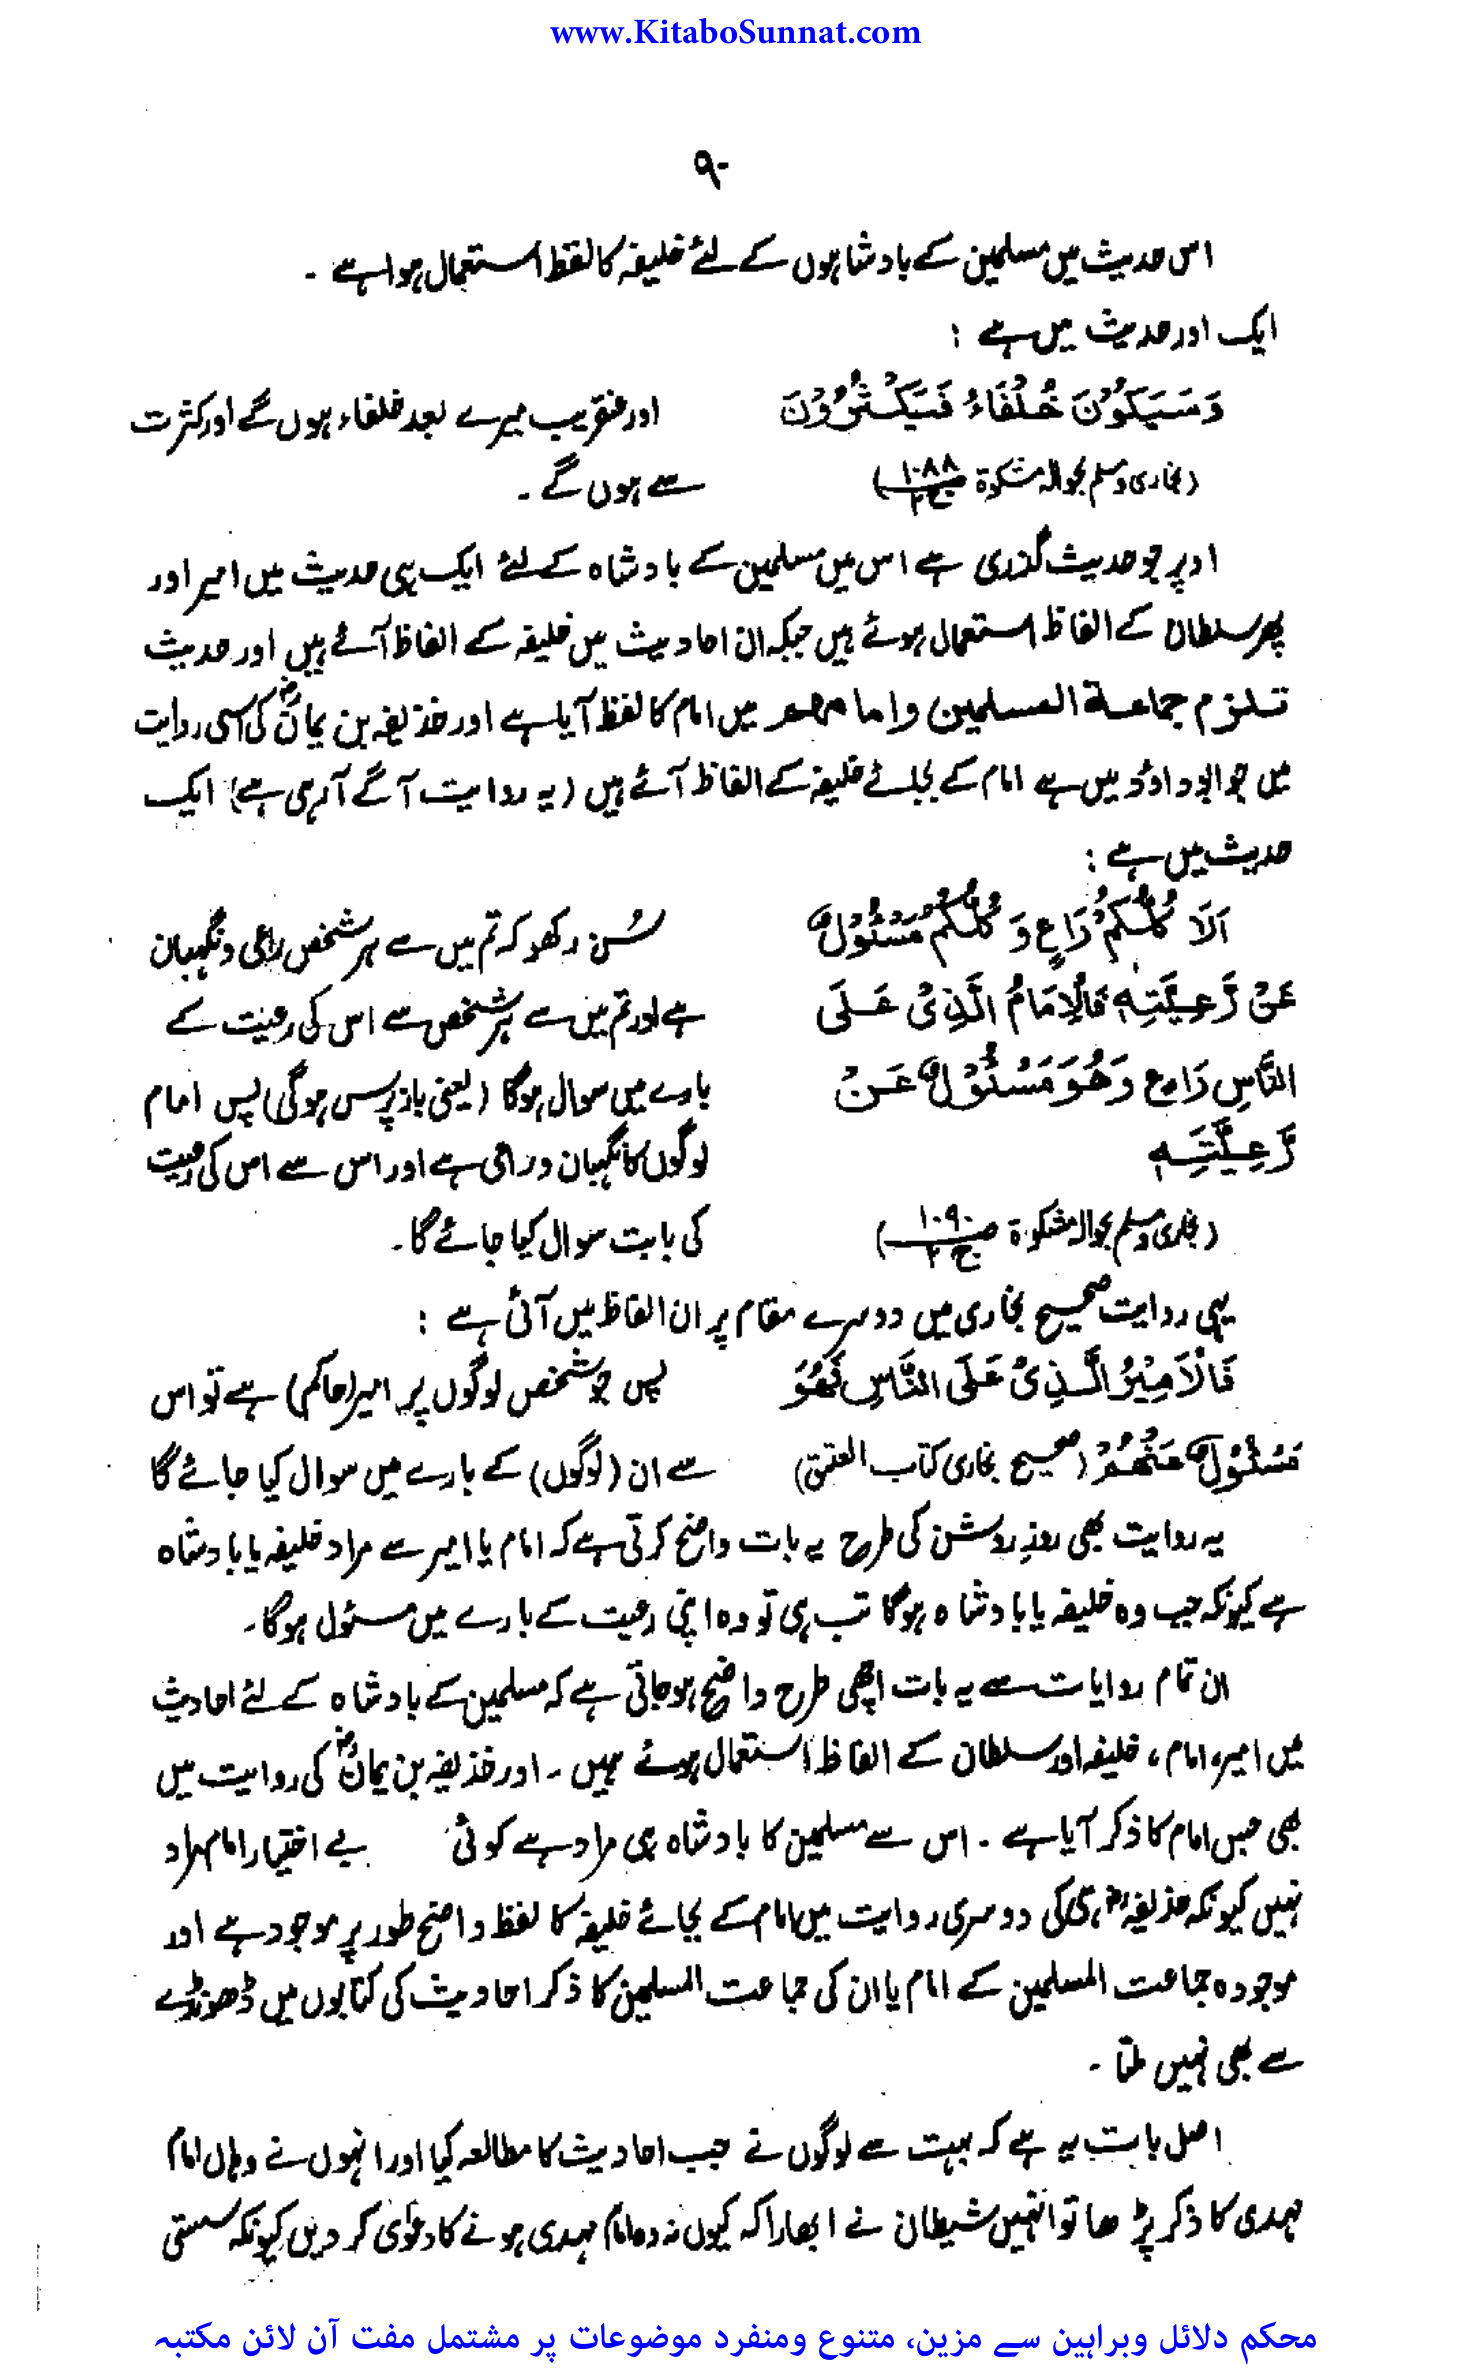 www.KitaboSunnat.com
۹۰
اس حدیث میں مسلمین کے بادشاہوں کے لئے خلیفہ کا لفظ استعمال ہوا ہے ۔
ایک اور حدیث میں ہے :
وَسَيَكُوْنَ خُلَفَاءُ فَيَكْثُرُوْنَ
(بخاری و مسلم بحوالہ مشکوۃ ص۱۰۸۸ ج۲)
اور عنقریب میرے بعد خلفاء ہوں گے اور کثرت
سے ہوں گے ۔
اوپر جو حدیث گذری ہے اس میں مسلمین کے بادشاہ کے لئے ایک ہی حدیث میں امیر اور
پھر سلطان کے الفاظ استعمال ہوئے ہیں جبکہ ان احادیث میں خلیفہ کے الفاظ آئے ہیں اور حدیث
تلزم جماعة المسلمین واما مهم میں امام کا لفظ آیا ہے اور حذیفہ بن یمانؓ کی اسی روایت
میں جو ابوداؤد میں ہے امام کے بجائے خلیفہ کے الفاظ آئے ہیں (یہ روایت آگے آرہی ہے) ایک
حدیث میں ہے :
اَلَا كُلُّكُمْ رَاعٍ وَ كُلُّكُمْ مَسْئُوْلٌ
عَنْ رَّعِيَّتِهٖ فَالْاِمَامُ الَّذِیْ عَلَی
النَّاسِ رَاعٍ وَهُوَ مَسْئُوْلٌ عَنْ
رَّعِيَّتِهٖ
(بخاری و مسلم بحوالہ مشکوۃ ص۱۰۹۰ ج۲)
سُن رکھو کہ تم میں سے ہر شخص راعی و نگہبان
ہے اور تم میں سے ہر شخص سے اس کی رعیت کے
بارے میں سوال ہوگا (یعنی باز پرس ہوگی) پس امام
لوگوں کا نگہبان و راعی ہے اور اس سے اس کی رعیت
کی بابت سوال کیا جائے گا۔
یہی روایت صحیح بخاری میں دوسرے مقام پر ان الفاظ میں آئی ہے :
فَالْاَمِيْرُ الَّذِیْ عَلَی النَّاسِ فَهُوَ
مَسْئُوْلٌ عَنْهُمْ (صحیح بخاری کتاب العتق)
پس جو شخص لوگوں پر امیر (حاکم) ہے تو اس
سے ان (لوگوں) کے بارے میں سوال کیا جائے گا
یہ روایت بھی روزِ روشن کی طرح یہ بات واضح کرتی ہے کہ امام یا امیر سے مراد خلیفہ یا بادشاہ
ہے کیونکہ جب وہ خلیفہ یا بادشاہ ہوگا تب ہی تو وہ اپنی رعیت کے بارے میں مسئول ہوگا۔
ان تمام روایات سے یہ بات اچھی طرح واضح ہو جاتی ہے کہ مسلمین کے بادشاہ کے لئے احادیث
میں امیر، امام، خلیفہ اور سلطان کے الفاظ استعمال ہوئے ہیں ۔ اور حذیفہ بن یمانؓ کی روایت میں
بھی جس امام کا ذکر آیا ہے ۔ اس سے مسلمین کا بادشاہ ہی مراد ہے کوئی بے اختیار امام مراد
نہیں کیونکہ حذیفہؓ ہی کی دوسری روایت میں امام کے بجائے خلیفہ کا لفظ واضح طور پر موجود ہے اور
موجودہ جماعت المسلمین کے امام یا ان کی جماعت المسلمین کا ذکر احادیث کی کتابوں میں ڈھونڈے
سے بھی نہیں ملتا ۔
اصل بات یہ ہے کہ بہت سے لوگوں نے جب احادیث کا مطالعہ کیا اور انہوں نے وہاں امام
مہدی کا ذکر پڑھا تو انہیں شیطان نے ابھارا کہ کیوں نہ وہ امام مہدی ہونے کا دعوٰی کر دیں کیونکہ سستی
محکم دلائل وبراہین سے مزین، متنوع ومنفرد موضوعات پر مشتمل مفت آن لائن مکتبہ